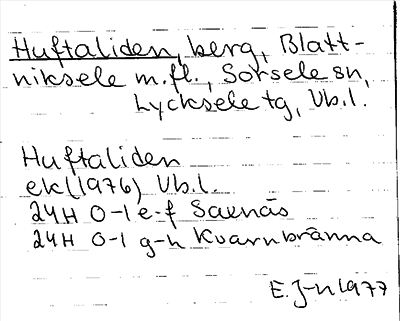 Huftaliden, berg, Blatt-
niksele m.fl., Sorsele sn,
Lycksele tg, Vb.l.
Huftaliden
ek(1976) Vb.l.
24H 0-1 e-f Saxnäs
24H 0-1 g-h Kvarnbränna
E. J-n 1977